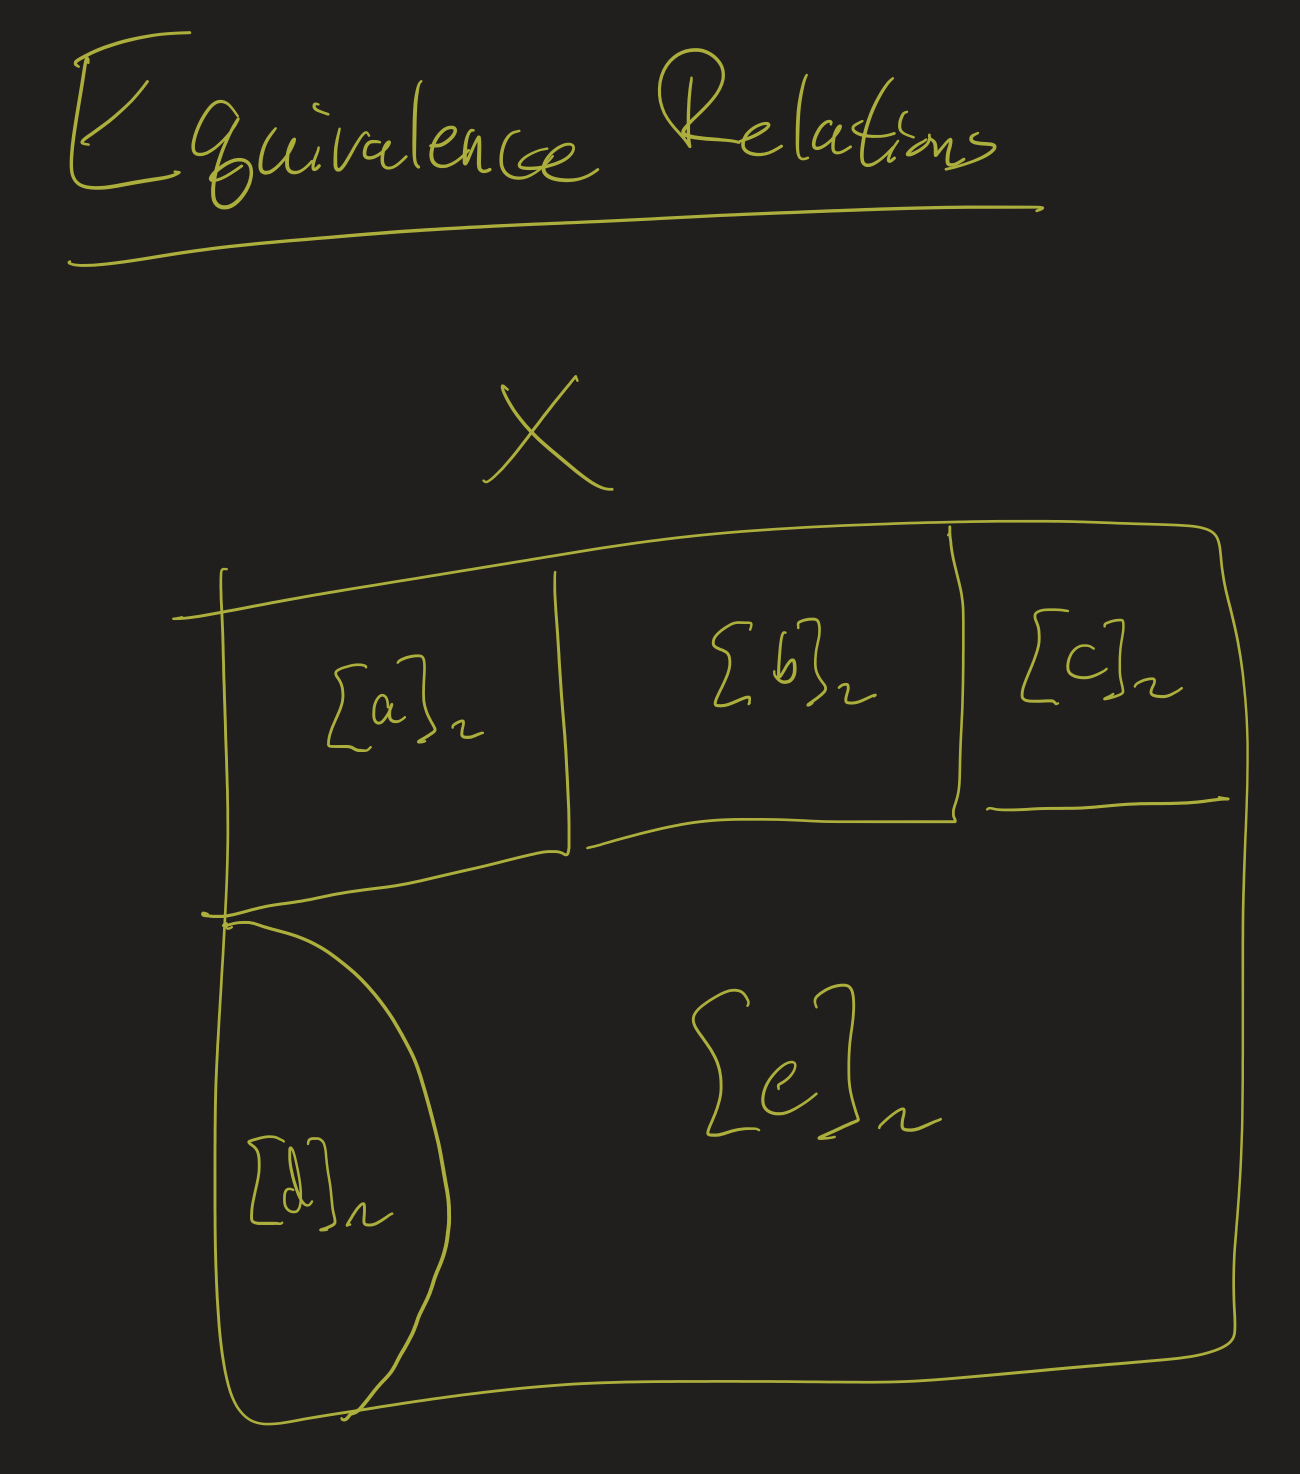 Equivalence Relations
X
[a]~ [b]~ [c]~
[e]~
[d]~